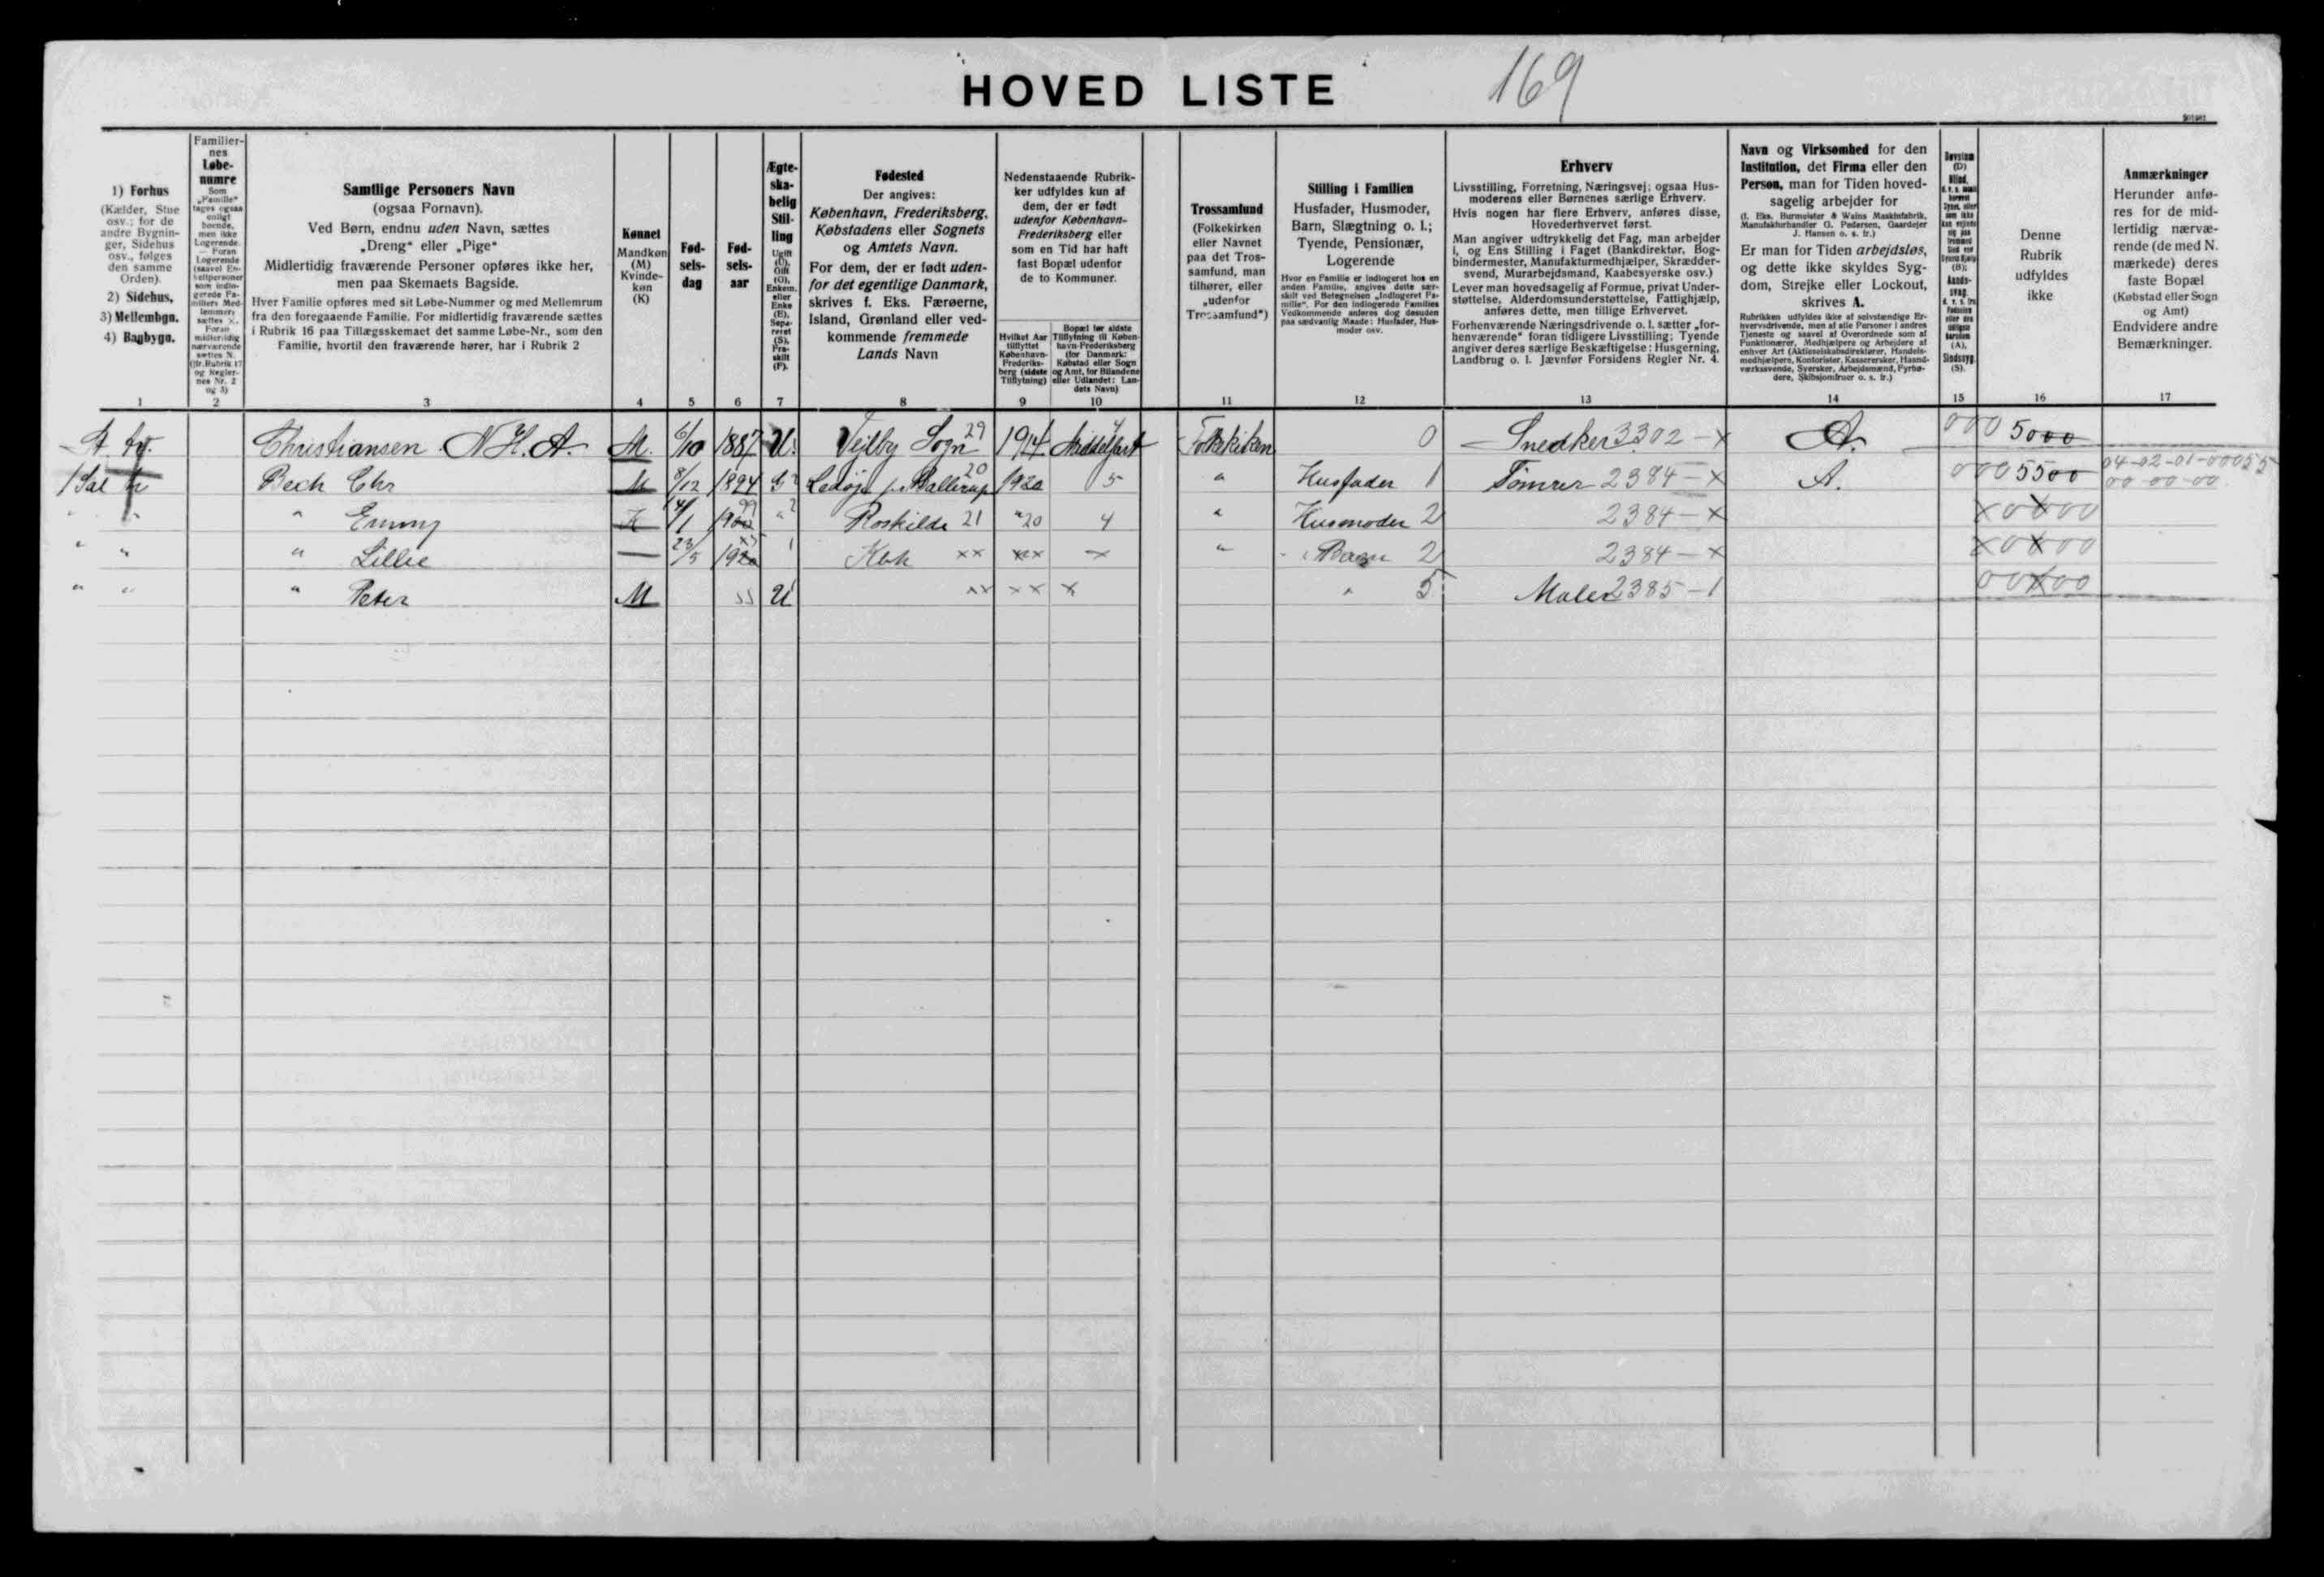 HOVED LISTE 169
1) Forhus
(Kælder, Stue
osv.; for de
andre Bygnin-
ger, Sidehus
osv., følges
den samme
Orden).
2) Sidehus,
3) Mellembgn.
4) Bagbygn.
1
Familier-
nes
Løbe-
numre
Som
„Familie“
tages ogsaa
enligt
boende,
men ikke
Logerende.
Foran
Logerende
2
Samtlige Personers Navn
(ogsaa Fornavn).
Ved Børn, endnu uden Navn, sættes
„Dreng“ eller „Pige“
Midlertidig fraværende Personer opføres ikke her,
men paa Skemaets Bagside.
Hver Familie opføres med sit Løbe-Nummer og med Mellemrum
fra den foregaaende Familie. For midlertidig fraværende sættes
i Rubrik 16 paa Tillægsskemaet det samme Løbe-Nr., som den
Familie, hvortil den fraværende hører, har i Rubrik 2
3
Kønnet
Mandkøn
(M)
Kvinde-
køn
(K)
4
Fød-
sels-
dag
5
Fød-
sels-
aar
6
Ægte-
ska-
belig
Stil-
ling
Ugift
(U),
Gift
(G),
Enkem.
eller
Enke
(E),
Sepa-
reret
(S),
Fra-
skilt
(F).
7
Fødested
Der angives:
København, Frederiksberg,
Købstadens eller Sognets
og Amtets Navn.
For dem, der er født uden-
for det egentlige Danmark,
skrives f. Eks. Færøerne,
Island, Grønland eller ved-
kommende fremmede
Lands Navn
8
Nedenstaaende Rubrik-
ker udfyldes kun af
dem, der er født
udenfor København-
Frederiksberg eller
som en Tid har haft
fast Bopæl udenfor
de to Kommuner.
Hvilket Aar
tilflyttet
København-
Frederiks-
berg (sidste
Tilflytning)
9
Bopæl før sidste
Tilflytning til Køben-
havn-Frederiksberg
(for Danmark:
Købstad eller Sogn
og Amt, for Bilandene
eller Udlandet: Lan-
dets Navn)
10
Trossamfund
(Folkekirken
eller Navnet
paa det Tros-
samfund, man
tilhører, eller
„udenfor
Trossamfund“)
11
Stilling i Familien
Husfader, Husmoder,
Barn, Slægtning o. l.;
Tyende, Pensionær,
Logerende
Hvor en Familie er indlogeret hos en
anden Familie, angives dette sær-
skilt ved Betegnelsen „Indlogeret Fa-
milie“. For den indlogerede Families
Vedkommende anføres dog desuden
paa sædvanlig Maade: Husfader, Hus-
moder osv.
12
Erhverv
Livsstilling, Forretning, Næringsvej; ogsaa Hus-
moderens eller Børnenes særlige Erhverv.
Hvis nogen har flere Erhverv, anføres disse,
Hovederhvervet først.
Man angiver udtrykkelig det Fag, man arbejder
i, og Ens Stilling i Faget (Bankdirektør, Bog-
bindermester, Manufakturmedhjælper, Skrædder-
svend, Murarbejdsmand, Kaabesyerske osv.)
Lever man hovedsagelig af Formue, privat Under-
støttelse, Alderdomsunderstøttelse, Fattighjælp,
anføres dette, men tillige Erhvervet.
Forhenværende Næringsdrivende o. l. sætter „for-
henværende“ foran tidligere Livsstilling; Tyende
angiver deres særlige Beskæftigelse: Husgerning,
Landbrug o. l. Jævnfør Forsidens Regler Nr. 4.
13
Navn og Virksomhed for den
Institution, det Firma eller den
Person, man for Tiden hoved-
sagelig arbejder for
(f. Eks. Burmeister & Wains Maskinfabrik,
Manufakturhandler G. Pedersen, Gaardejer
J. Hansen o. s. fr.)
Er man for Tiden arbejdsløs,
og dette ikke skyldes Syg-
dom, Strejke eller Lockout,
skrives A.
Rubrikken udfyldes ikke af selvstændige Er-
hvervsdrivende, men af alle Personer i andres
Tjeneste og saavel af Overordnede som af
Funktionærer, Medhjælpere og Arbejdere af
enhver Art (Aktieselskabsdirektører, Handels-
medhjælpere, Kontorister, Kassererske, Haand-
værkssvende, Syersker, Arbejdsmænd, Fyrbø-
dere, Skibsjomfruer o. s. fr.)
14
15
Denne
Rubrik
udfyldes
ikke
16
Anmærkninger
Herunder anfø-
res for de mid-
lertidig nærvæ-
rende (de med N.
mærkede) deres
faste Bopæl
(Købstad eller Sogn
og Amt)
Endvidere andre
Bemærkninger.
17
St. tv. Christiansen N. H. A. M. 6/10 1887 U. Vejlby Sogn 29 1914 Middelfart Folkekirken 0 Snedker 3302 - x A. 000 5000
1 Sal Bech Chr M 8/12 1894 G 2 Ledøje p. Ballerup 20 1920 5 " Husfader 1 Tømrer 2384 - x A. 000 5500 04-02-01-00055
00-00-00
" " " Emmy K 14/1 1900 99 " 2 Roskilde 21 "20 4 " Husmoder 2 2384 - x x0x00
" " " Lillie — 23/5 1920 1 Kbh xx xxx x " Barn 2 2384 - x x0x00
" " " Peter M U xx xx x " 5 Maler 2385 - 1 00x00